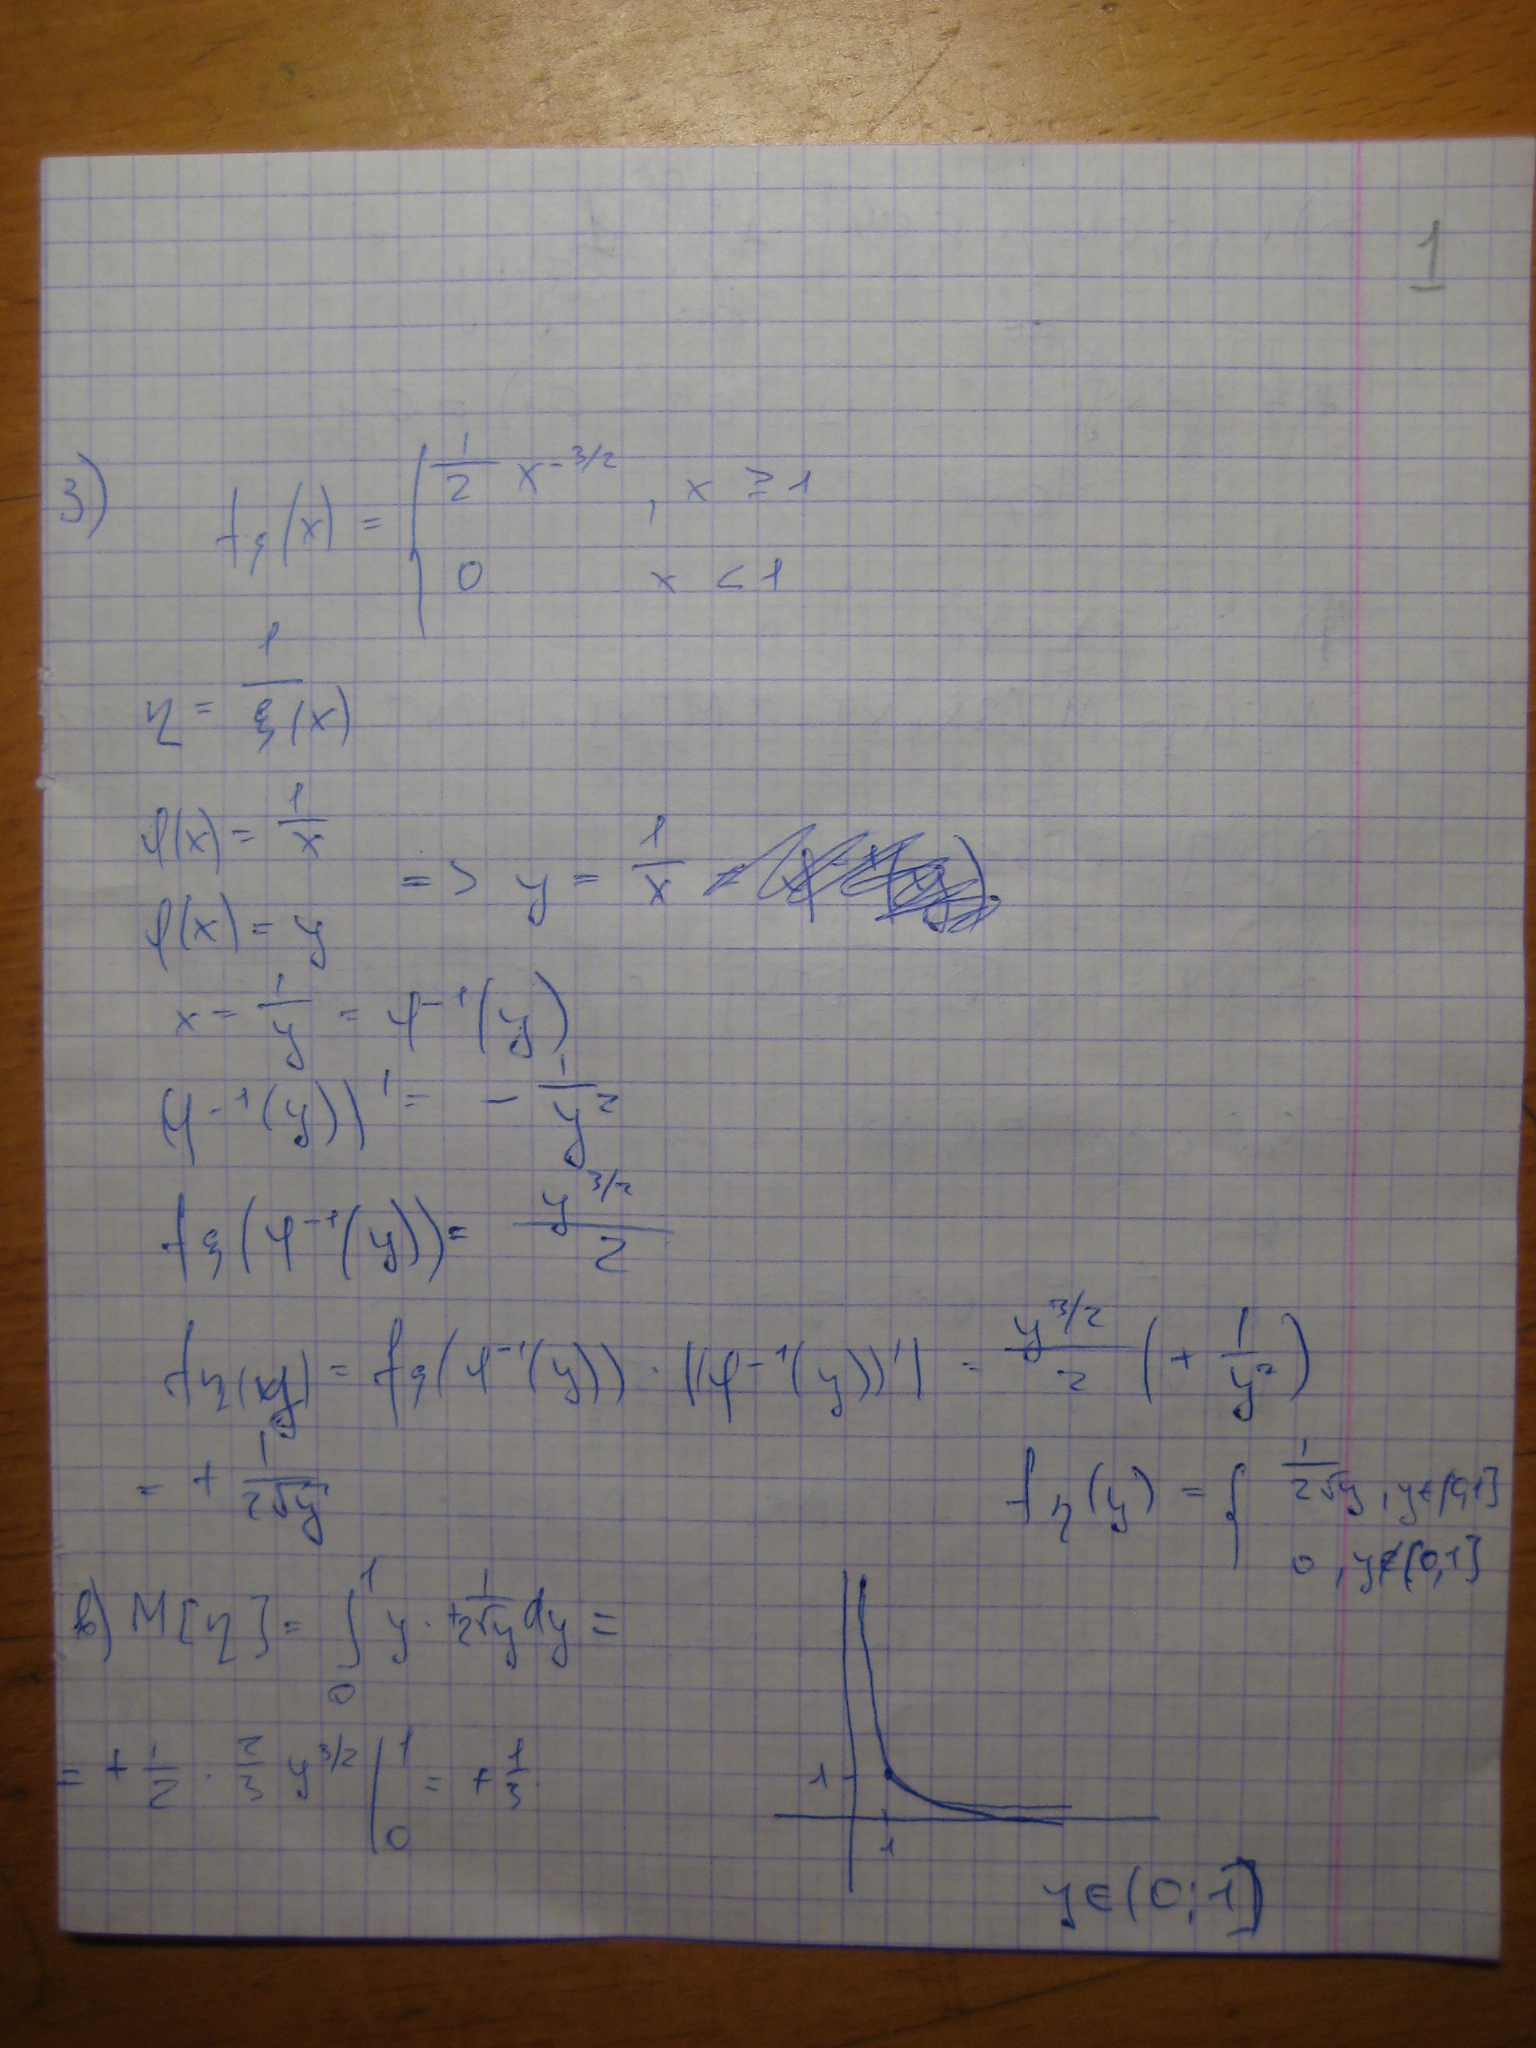 1
3) f_ξ(x) = { 1/2 x^{-3/2}, x ≥ 1
0 x < 1
η = 1/ξ(x)
φ(x) = 1/x
=> y = 1/x
φ(x) = y
x = 1/y = φ^{-1}(y)
(φ^{-1}(y))' = - 1/y^2
f_ξ(φ^{-1}(y)) = y^{3/2}/2
f_η(y) = f_ξ(φ^{-1}(y)) · |(φ^{-1}(y))'| = y^{3/2}/2 (+ 1/y^2)
= + 1/(2√y)
f_η(y) = { 1/(2√y), y ∈ (0,1]
0, y ∉ (0,1]
в) M[η] = ∫_0^1 y · + 1/(2√y) dy =
= + 1/2 · 2/3 y^{3/2} |_0^1 = + 1/3.
1
1
y ∈ (0; 1]